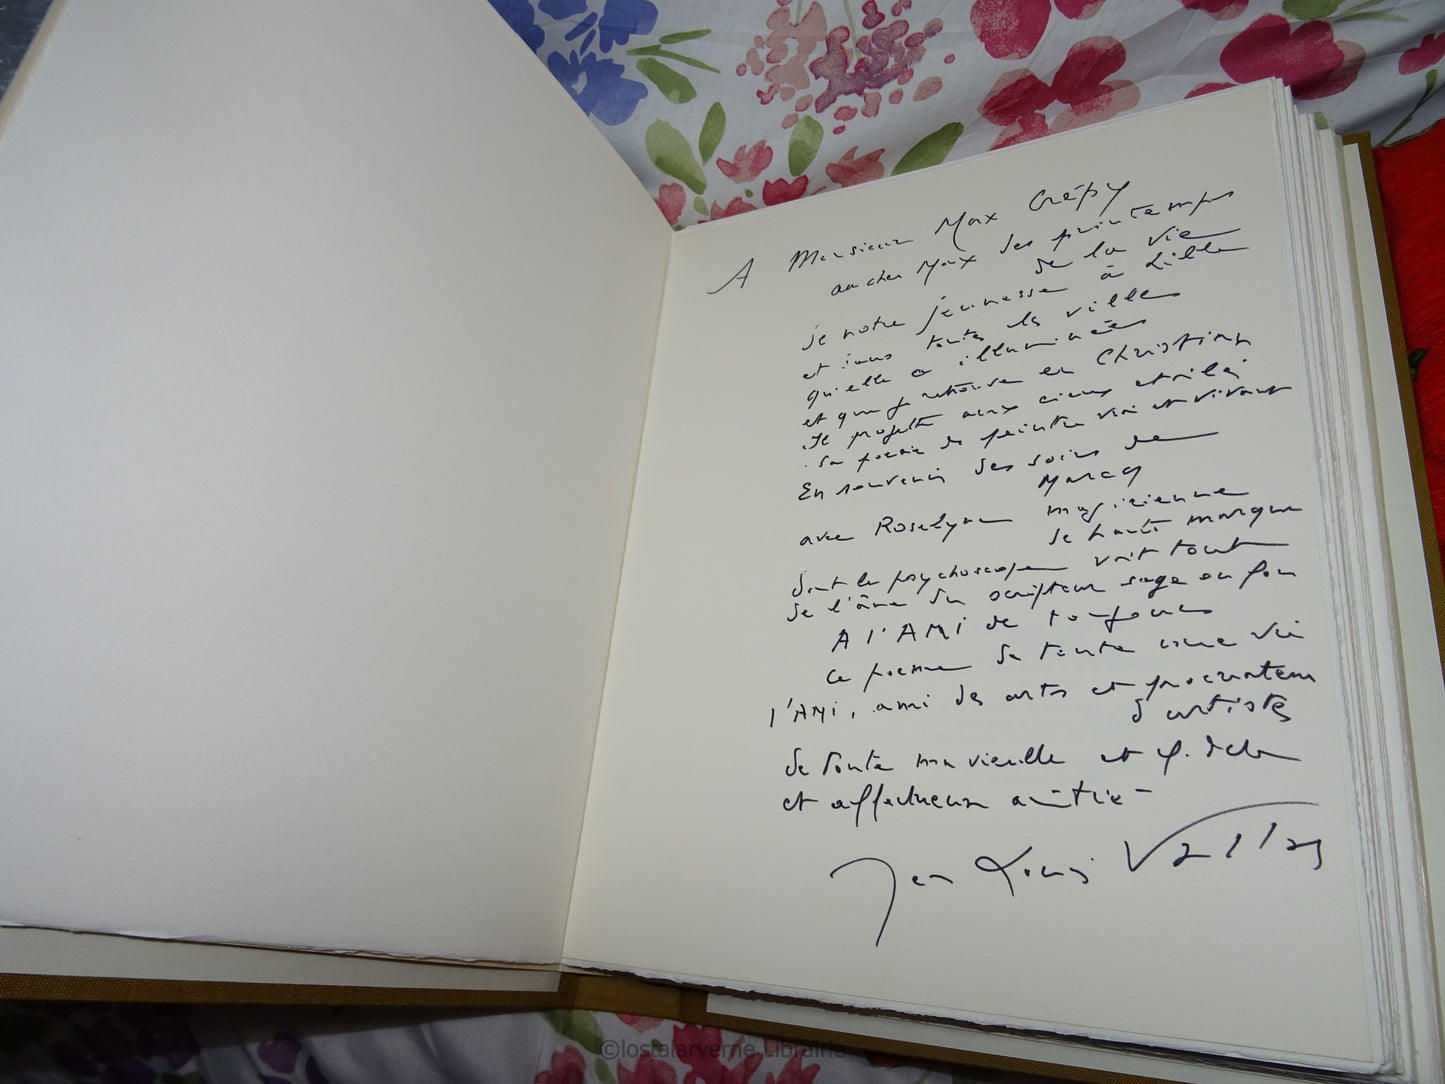 A Monsieur Max Crépy
au cher Max des printemps
de la vie
je notre jeunesse à Lille
et sous toutes les villes
qu'elle a illuminées
et que je retrouve en Christian
Il projette aux cieux étoilés
sa poésie de peintre vrai et vivant
En souvenir des soirs de
Marcq
avec Roselyne magicienne
de haute marque
dont le psychoscope voit tout
de l'âme du scripteur sage ou fou
A l'AMI de toujours
ce poème de toute une vie
l'AMI, ami des arts et procurateur
d'artistes
de toute ma vieille et
et affectueuse amitié -
Jean Louis Vallas
©lostalarverne Librairie